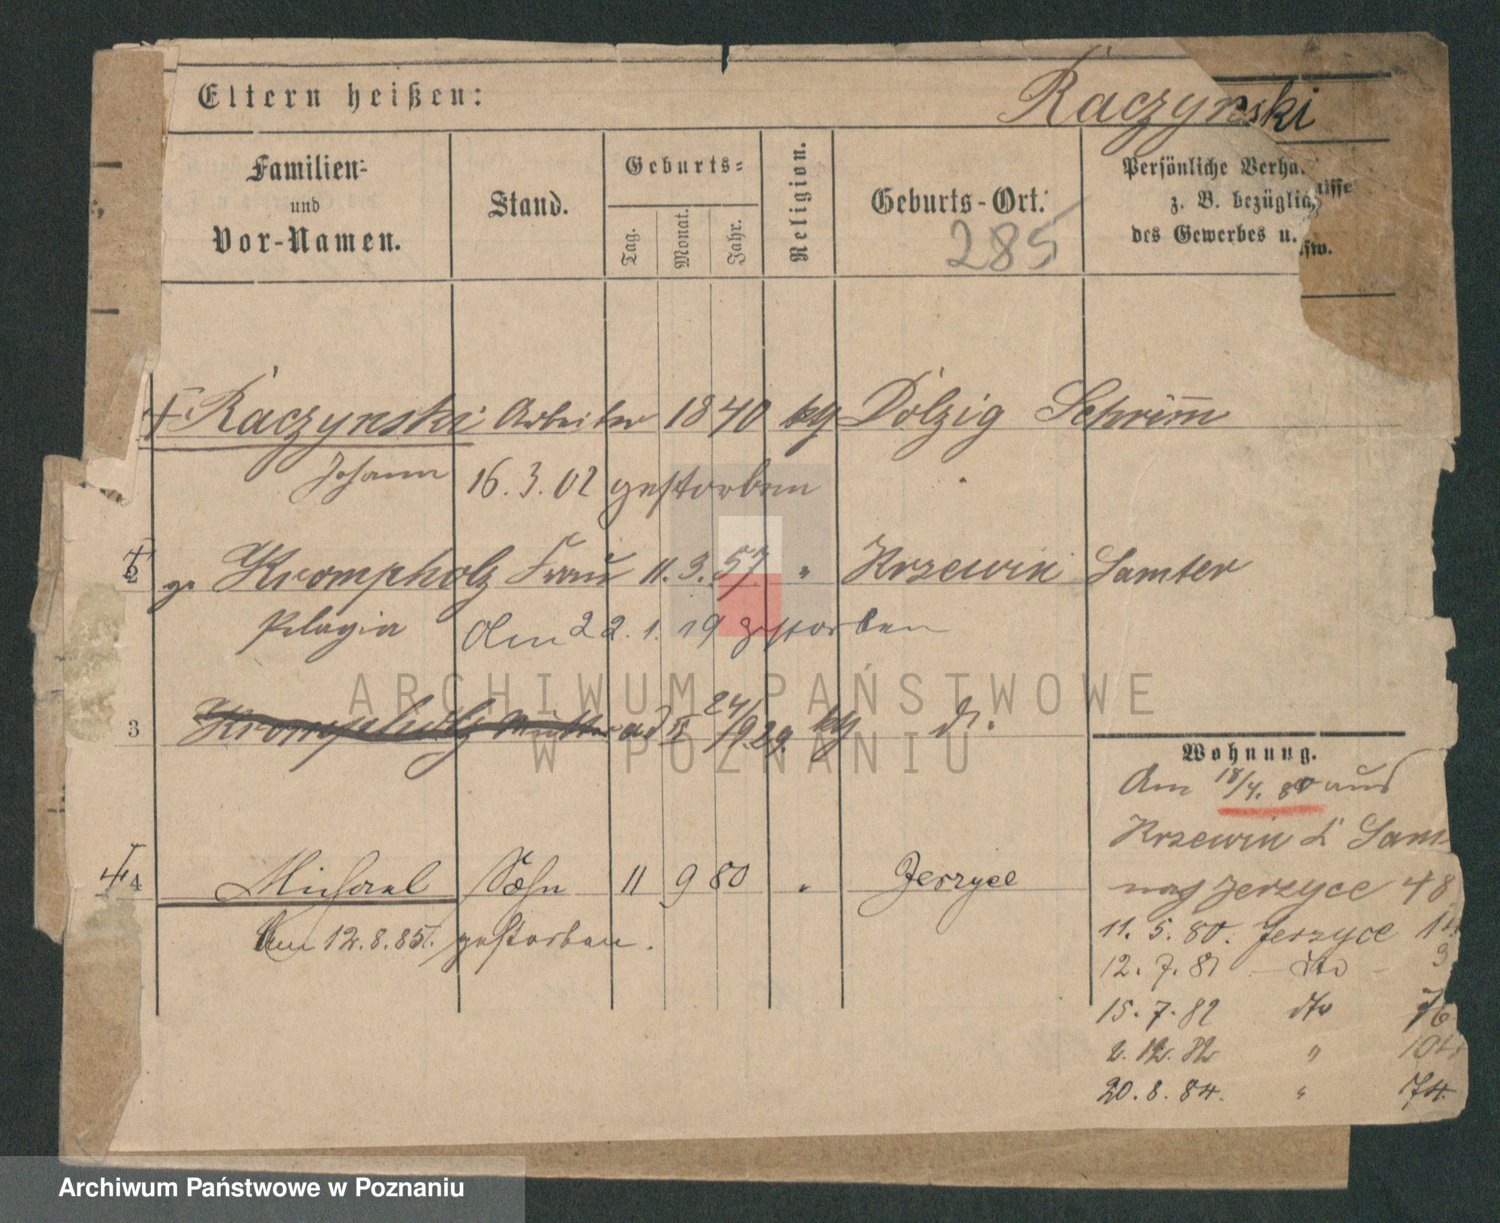 Eltern heißen:
Raczynski
Familien-
und
Vor-Namen.
Stand.
Geburts-
Tag.
Monat.
Jahr.
Religion.
Geburts-Ort.
285
Persönliche Verha
nisse
z. B. bezüglich
des Gewerbes u.
sw.
Raczynski Arbeiter 1840 kg Dolzig Schrimm
Johann 16. 3. 02 gestorben
2 g. Krompholz Frau 11. 3. 57 " Krzewin Samter
Pelagia den 22. 1. 19 gestorben
3 Krompholz Mutter 24/9. 29. kg d.
Wohnung.
Am 18/4. 80 aus
Krzewin Sam
nach Jerzyce 48
4 Michael Sohn 11 9 80 " Jerzyce
Am 12. 8. 85 gestorben.
11. 5. 80. Jerzyce
12. 7. 81 – dto – 3
15. 7. 82 dto 76
2. 12. 82 " 104
20. 8. 84. " 74.
ARCHIWUM PAŃSTWOWE
W POZNANIU
Archiwum Państwowe w Poznaniu